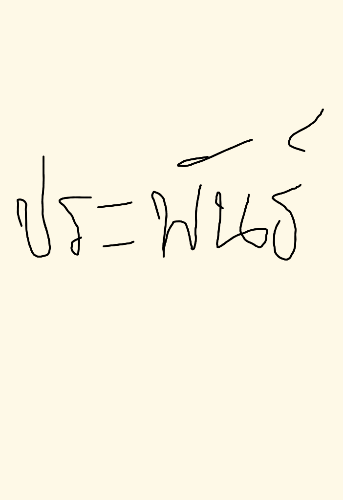 ประพันธ์